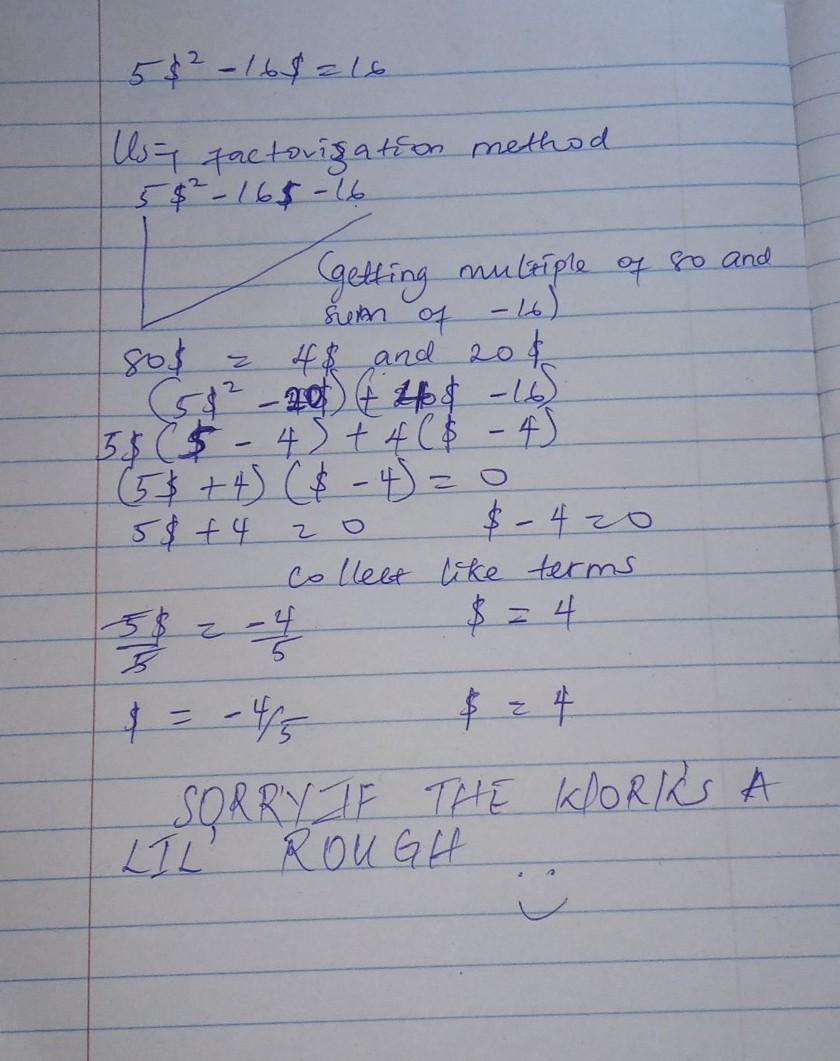 5$² - 16$ = 16
factorization method
5$² - 16$ - 16
(getting multiple of 80 and
sum of -16)
80$ = 4$ and 20$
(5$² - 20$) (+ 4$ - 16)
5$($ - 4) + 4($ - 4)
(5$ + 4) ($ - 4) = 0
5$ + 4 = 0 $ - 4 = 0
collect like terms
5$/5 = -4/5 $ = 4
$ = -4/5 $ = 4
SORRY IF THE WORK'S A
LIL' ROUGH